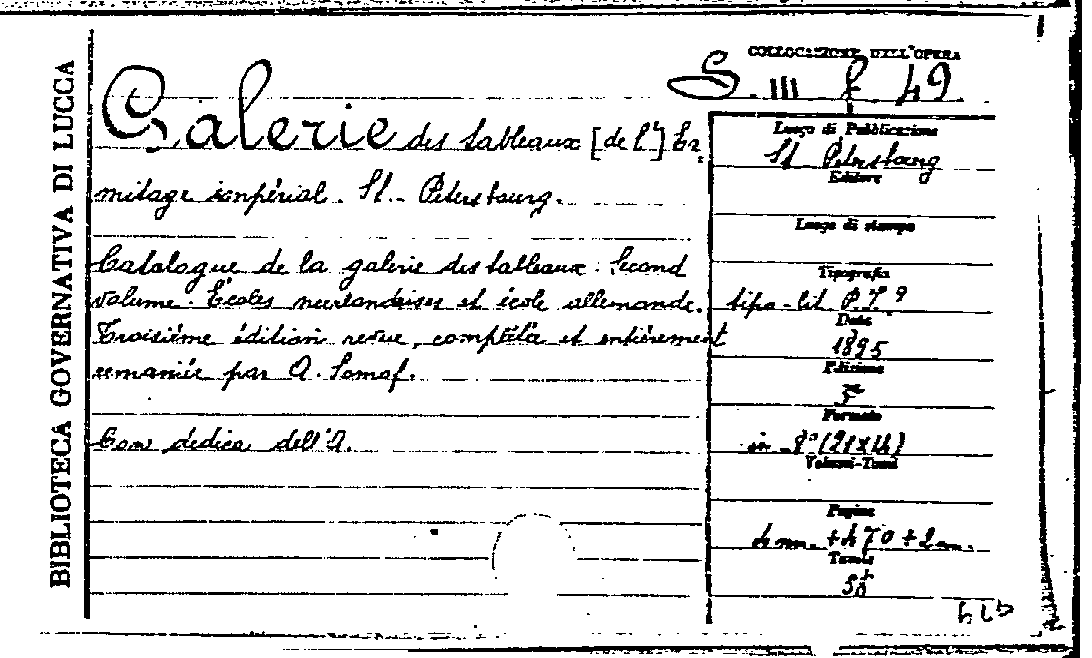 BIBLIOTECA GOVERNATIVA DI LUCCA
COLLOCAZIONE DELL'OPERA
S. III f 49
Galerie des tableaux [de l'] Er,
mitage impérial. St. Petersbourg.
Catalogue de la galerie des tableaux. Second
volume. Écoles neerlandaises et école allemande.
Troisiéme édition revue, complêta et entièrement
remaniée par A. Somof.
Con dedica dell'A.
Luogo di Pubblicazione
St Petersbourg
Editore
Luogo di stampa
Tipografia
tipo-lit. P.
Data
1895
Edizione
Formato
in -8° (21x14)
Volumi-Tomi
Pagine
4 nn. + 470 + 2 nn.
Tavole